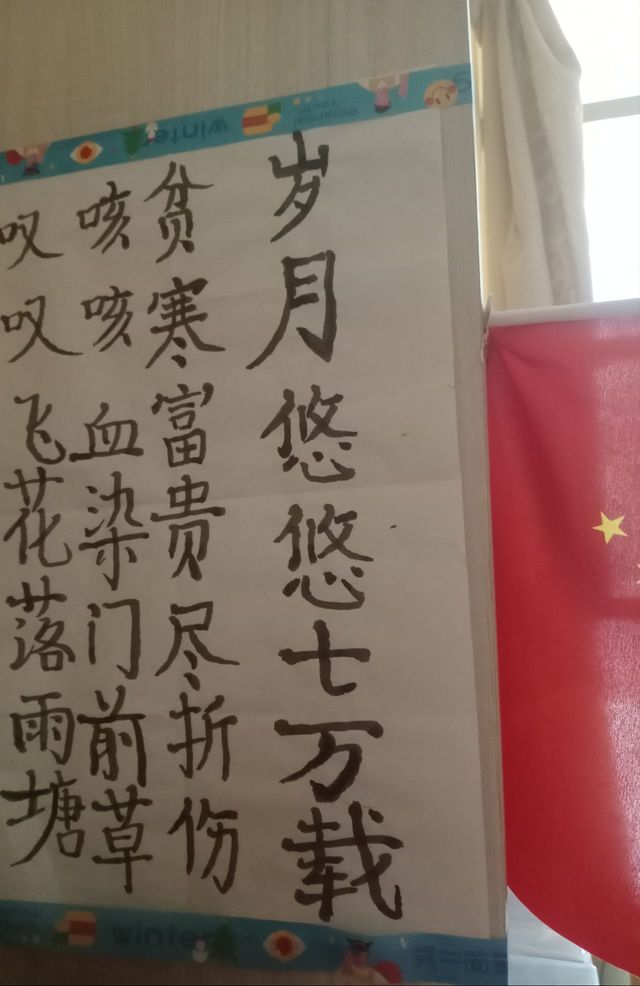 岁月悠悠七万载
贫寒富贵尽折伤
咳咳血染门前草
叹叹飞花落雨塘
winter
Potential
Youth
winter